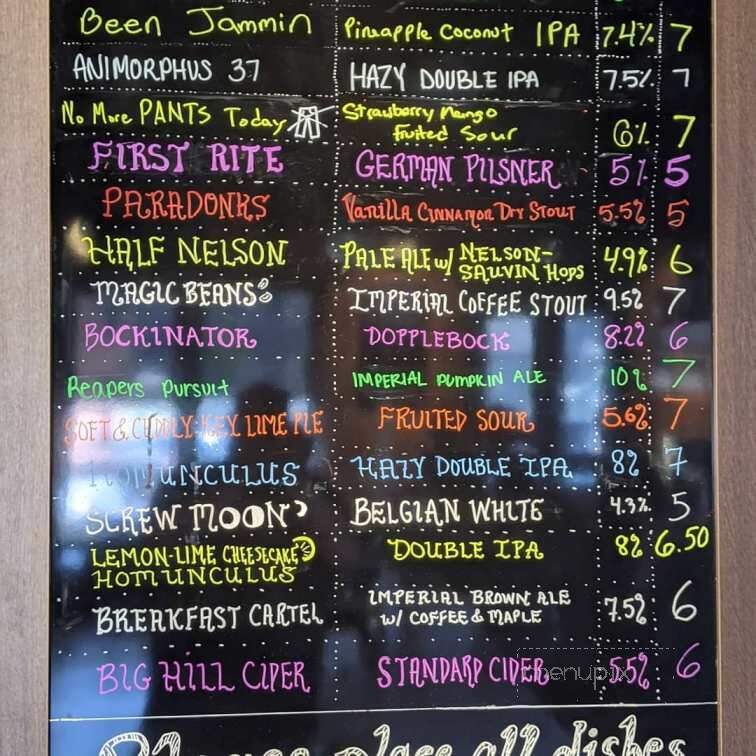 Been Jammin Pineapple Coconut IPA 7.4% 7
ANIMORPHUS 37 HAZY DOUBLE IPA 7.5% 7
No More PANTS Today Strawberry Mango
fruited Sour 6% 7
FIRST RITE GERMAN PILSNER 5% 5
PARADONKS Vanilla Cinnamon Dry Stout 5.5% 5
HALF NELSON PALE ALE w/ NELSON-
SAUVIN HOPS 4.9% 6
MAGIC BEANS IMPERIAL COFFEE STOUT 9.5% 7
BOCKINATOR DOPPLEBOCK 8.2% 6
Reapers Pursuit IMPERIAL PUMPKIN ALE 10% 7
SOFT & CUDDLY KEY LIME PIE FRUITED SOUR 5.6% 7
HOMUNCULUS HAZY DOUBLE IPA 8% 7
SCREW MOON BELGIAN WHITE 4.3% 5
LEMON-LIME CHEESECAKE
HOMUNCULUS DOUBLE IPA 8% 6.50
BREAKFAST CARTEL IMPERIAL BROWN ALE
w/ COFFEE & MAPLE 7.5% 6
BIG HILL CIDER STANDARD CIDER 5.5% 6
menupix
Please place all dishes